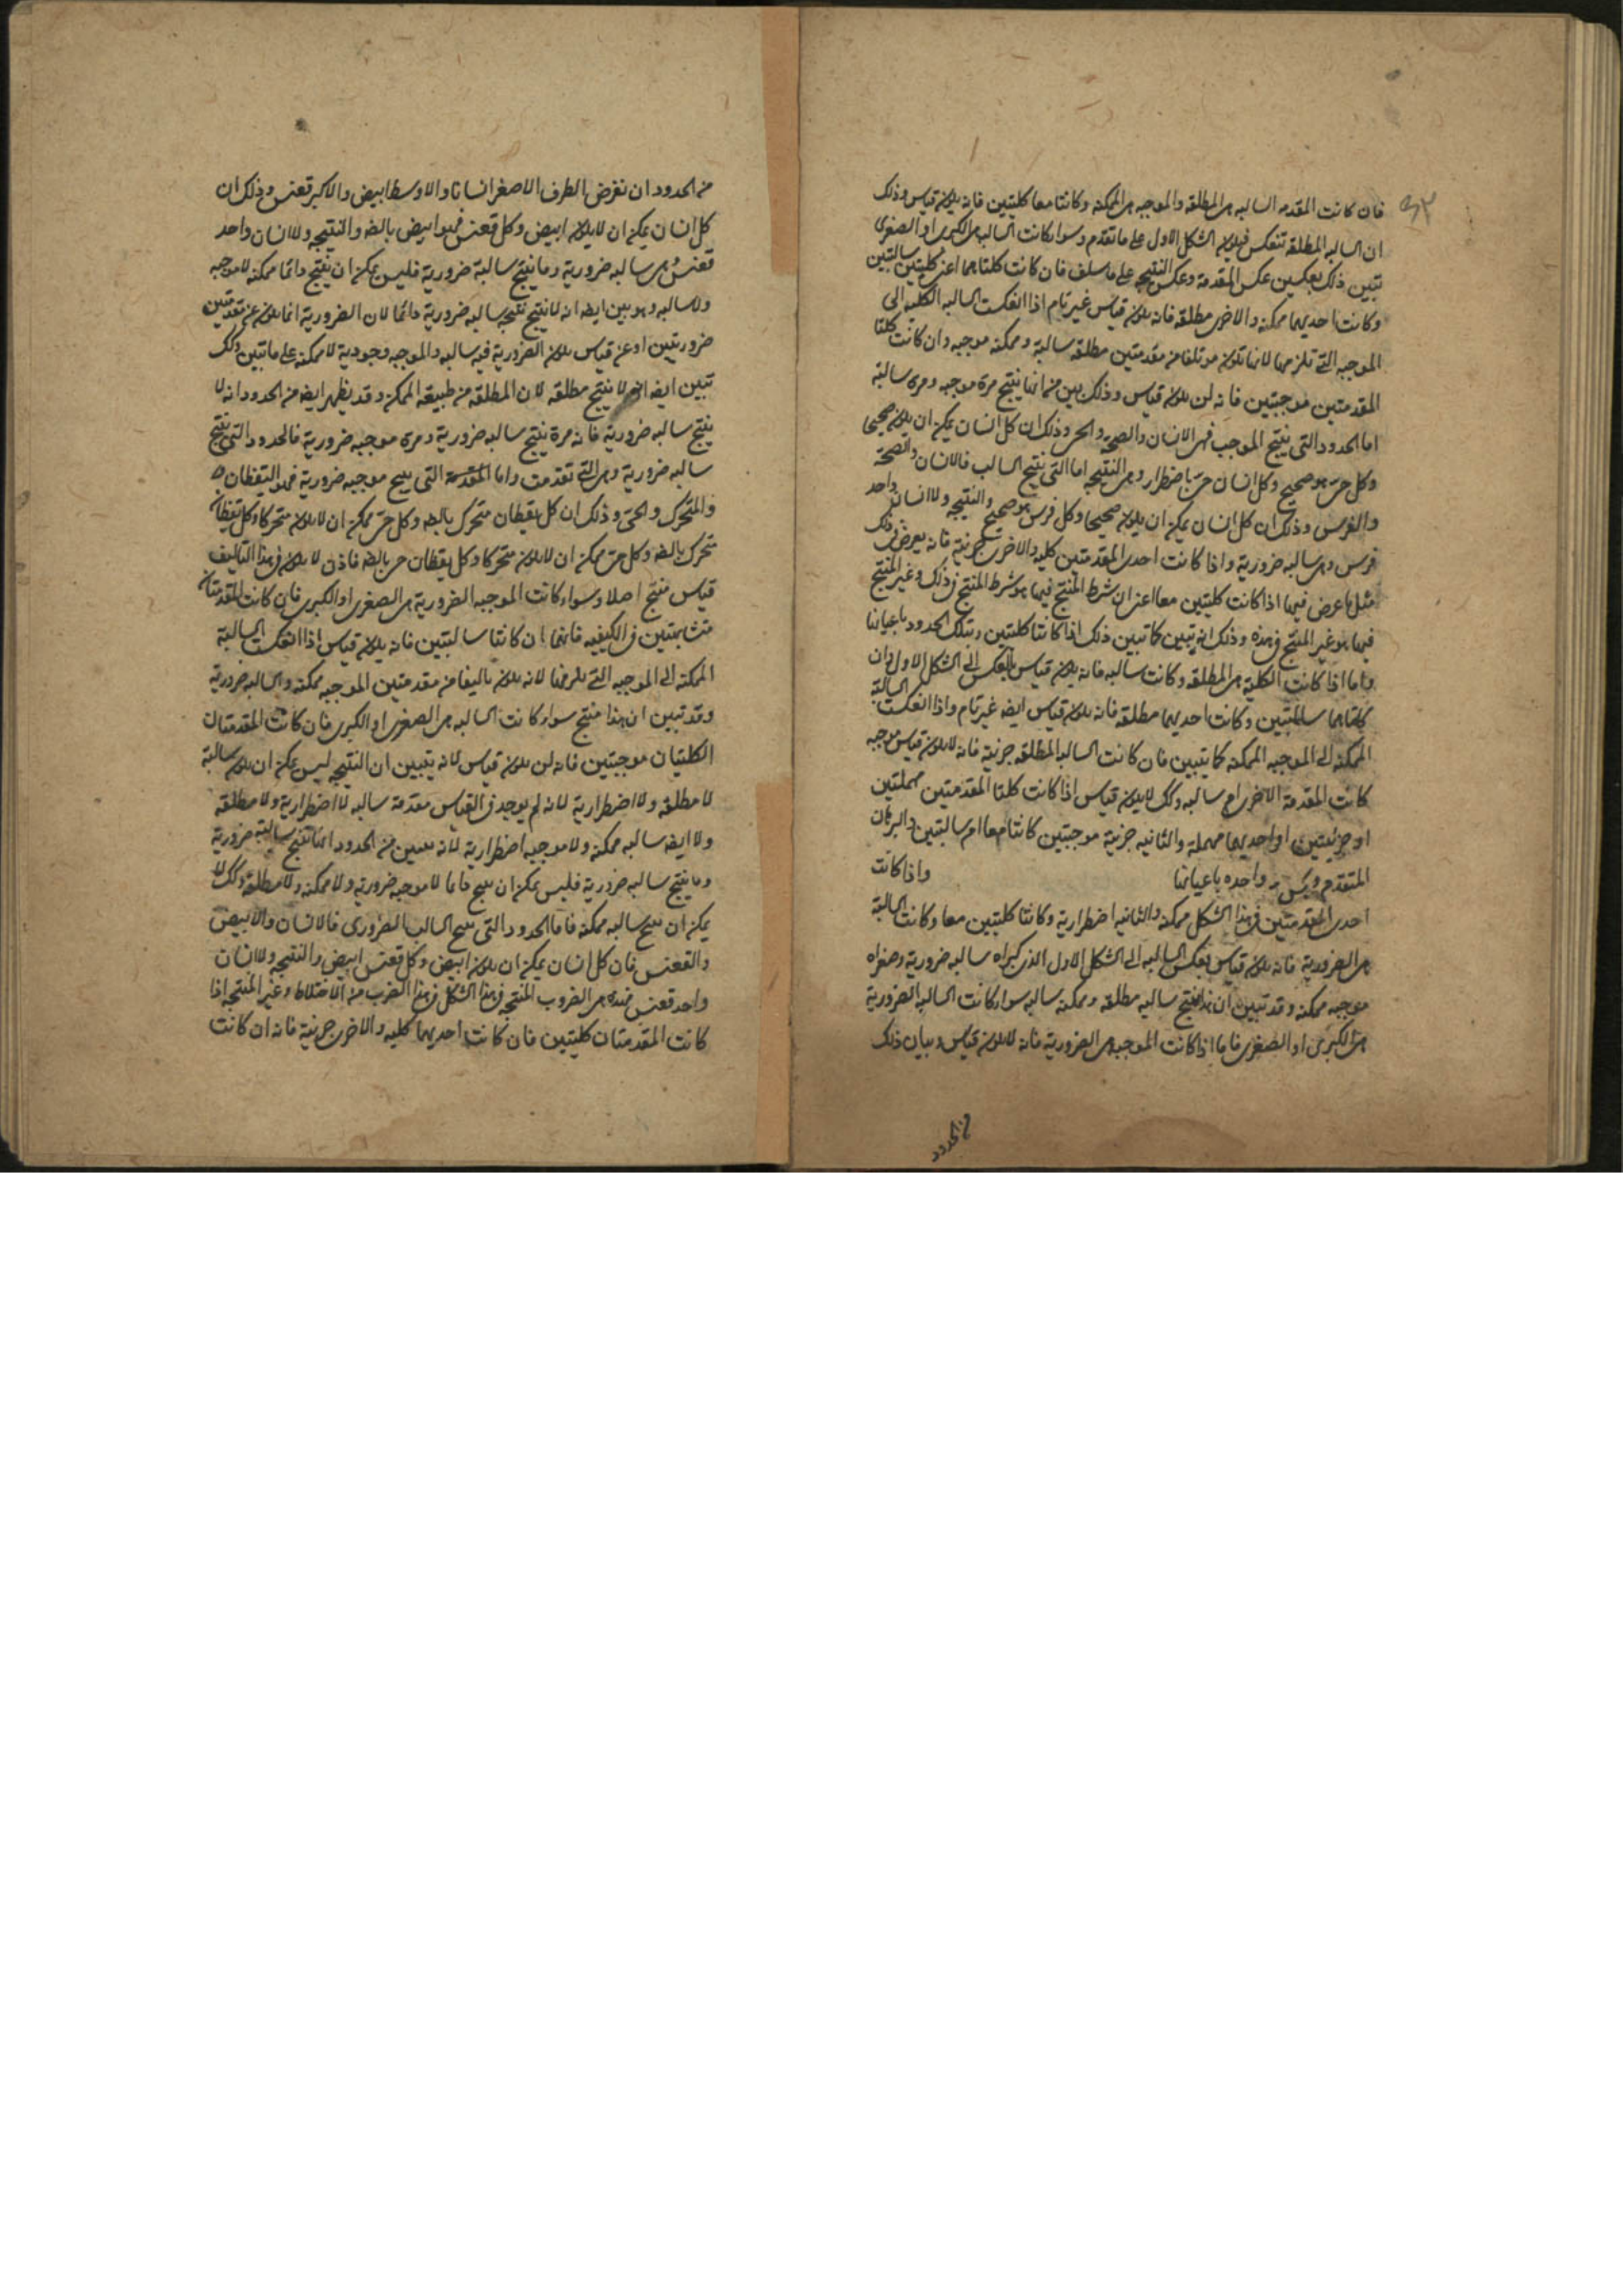 ٣٢
فان كانت المقدمه السالبه هى المطلقه والموجبه هى الممكنه وكانتا معا كليتين فانه يكون قياس وذلك
ان السالبه المطلقه تنعكس فيكون الشكل الاول على ماتقدم وسواء كانت السالبه هى الكبرى او الصغرى
تبين ذلك بعكسين عكس المقدمة وعكس النتيجه على ماسلف فان كانت كلتاهما اعنى كليتين سالبتين
وكانت احديهما ممكنه والاخرى مطلقه فانه يكون قياس غير تام اذا انعكست السالبه الكليه الى
الموجبه التى تلزمها لانها تكون موتلفا من مقدمتين مطلقه سالبة وممكنه موجبه وان كانت كلتا
المقدمتين موجبتين فانه لن يكون قياس وذلك بين من انها ينتج مرة موجبه ومرى سالبة
اما الحدود التى ينتج الموجب فهى الانسان والصحة والحى وذلك ان كل انسان يمكن ان يكون صحيحا
وكل حى هو صحيح وكل انسان حى باضطرار وهى النتيجه اما التى ينتج السالب فالانسان والصحة
والفرس وذلك ان كل انسان يمكن ان يكون صحيحا وكل فرس هو صحيح والنتيجه ولا انسان واحد
فرس وهى سالبه ضرورية واذا كانت احدى المقدمتين كليه والاخرى جزئية فانه يعرض فى ذلك
مثل ما عرض فيما اذا كانت كليتين معا اعنى ان شرط المنتج فيما هو شرط المنتج فى ذلك وغير المنتج
فيما هو غير المنتج فى هذه وذلك انه يتبين كما تبين ذلك اذا كانتا كليتين وبتلك الحدود باعيانها
واما اذا كانت الكلية هى المطلقه وكانت سالبه فانه يكون قياس بالعكس الى الشكل الاول وان
كلتاهما سالبتين وكانت احديهما مطلقه فانه يكون قياس ايضه غير تام واذا انعكست السالبة
الممكنه الى الموجبه الممكنه كما يتبين فان كانت السالبه المطلقه جزئية فانه لا يكون قياس موجبه
كانت المقدمة الاخرى ام سالبه وكك لا يكون قياس اذا كانت كلتا المقدمتين مهملتين
او جزئيتين او احديهما مهملة والثانيه جزئية موجبتين كانتا معا ام سالبتين والبرهان
المتقدم واحده باعيانها واذا كانت
احدى المقدمتين فى هذا الشكل ممكنه والثانيه اضطرارية وكانتا كليتين معا وكانت السالبة
هى الضرورية فانه يكون قياس بعكس السالبه الى الشكل الاول الذى كبراه سالبه ضرورية وصغراه
موجبه ممكنه وقد تبين ان هذا ينتج سالبه مطلقه وممكنه سالبه سواء كانت السالبه الضرورية
هى الكبرى او الصغرى فاما اذا كانت الموجبه هى الضرورية فانه لا يكون قياس وبيان ذلك
من الحدود
من الحدود ان نفرض الطرف الاصغر انسانا والاوسط ابيض والاكبر قعنس وذلك ان
كل انسان يمكن ان لا يكون ابيض وكل قعنس فهو ابيض بالضه والنتيجه ولا انسان واحد
قعنس وهى سالبه ضرورية وما ينتج سالبة ضرورية فليس يمكن ان ينتج دائما ممكنه لا موجبه
ولا سالبه وهو بين ايضه انه لا ينتج نتيجه سالبه ضرورية دائما لان الضرورية انما يكون عن مقدمتين
ضروريتين او عن قياس يكون الضرورية فيه سالبه والموجبه وجودية لا ممكنه على ماتبين وكك
تبين ايضه انه لا ينتج مطلقه لان المطلقه من طبيعة الممكن وقد يظهر ايضه من الحدود انه لا
ينتج سالبه ضرورية فانه مرة ينتج سالبه ضرورية ومرى موجبه ضرورية فالحدود التى ينتج
سالبه ضرورية وهى التى تقدمت واما المقدمة التى ينتج موجبه ضرورية فهو اليقظان
والمتحرك والحى وذلك ان كل يقظان متحرك بالضه وكل حى يمكن ان لا يكون متحركا وكل يقظان
متحرك بالضه وكل حى يمكن ان لا يكون متحركا وكل يقظان حى بالضه فاذن لا يكون فى هذا التاليف
قياس منتج اصلا وسواء كانت الموجبه الضرورية هى الصغرى او الكبرى فان كانت المقدمتان
متشابهتين فى الكيفيه فانهما ان كانتا سالبتين فانه يكون قياس اذا انعكست السالبة
الممكنه الى الموجبه التى يلزمها لانه يكون تاليفا من مقدمتين الموجبه ممكنه والسالبه ضرورية
وقد تبين ان هذا منتج سواء كانت السالبه هى الصغرى او الكبرى فان كانت المقدمتان
الكليتان موجبتين فانه لن يكون قياس لانه يتبين ان النتيجه ليس يمكن ان يكون سالبة
لا مطلقه ولا اضطرارية لانه لم يوجد فى القياس مقدمة سالبه لا اضطرارية ولا مطلقه
ولا ايضه سالبه ممكنه ولا موجبه اضطرارية لانه يتبين من الحدود انها تنتج سالبة ضرورية
وما ينتج سالبه ضرورية فليس يمكن ان ينتج دائما لا موجبه ضرورية ولا ممكنه ولا مطلقه وكك لا
يمكن ان ينتج سالبه ممكنه فاما الحدود التى ينتج السالب الضرورى فالانسان والابيض
والقعنس فان كل انسان يمكن ان يكون ابيض وكل قعنس ابيض والنتيجه ولا انسان
واحد قعنس فهذه هى الضروب المنتجه فى هذا الشكل فى هذا الضرب من الاختلاط وغير المنتجه اذا
كانت المقدمتان كليتين فان كانت احديهما كليه والاخرى جزئية فانه ان كانت